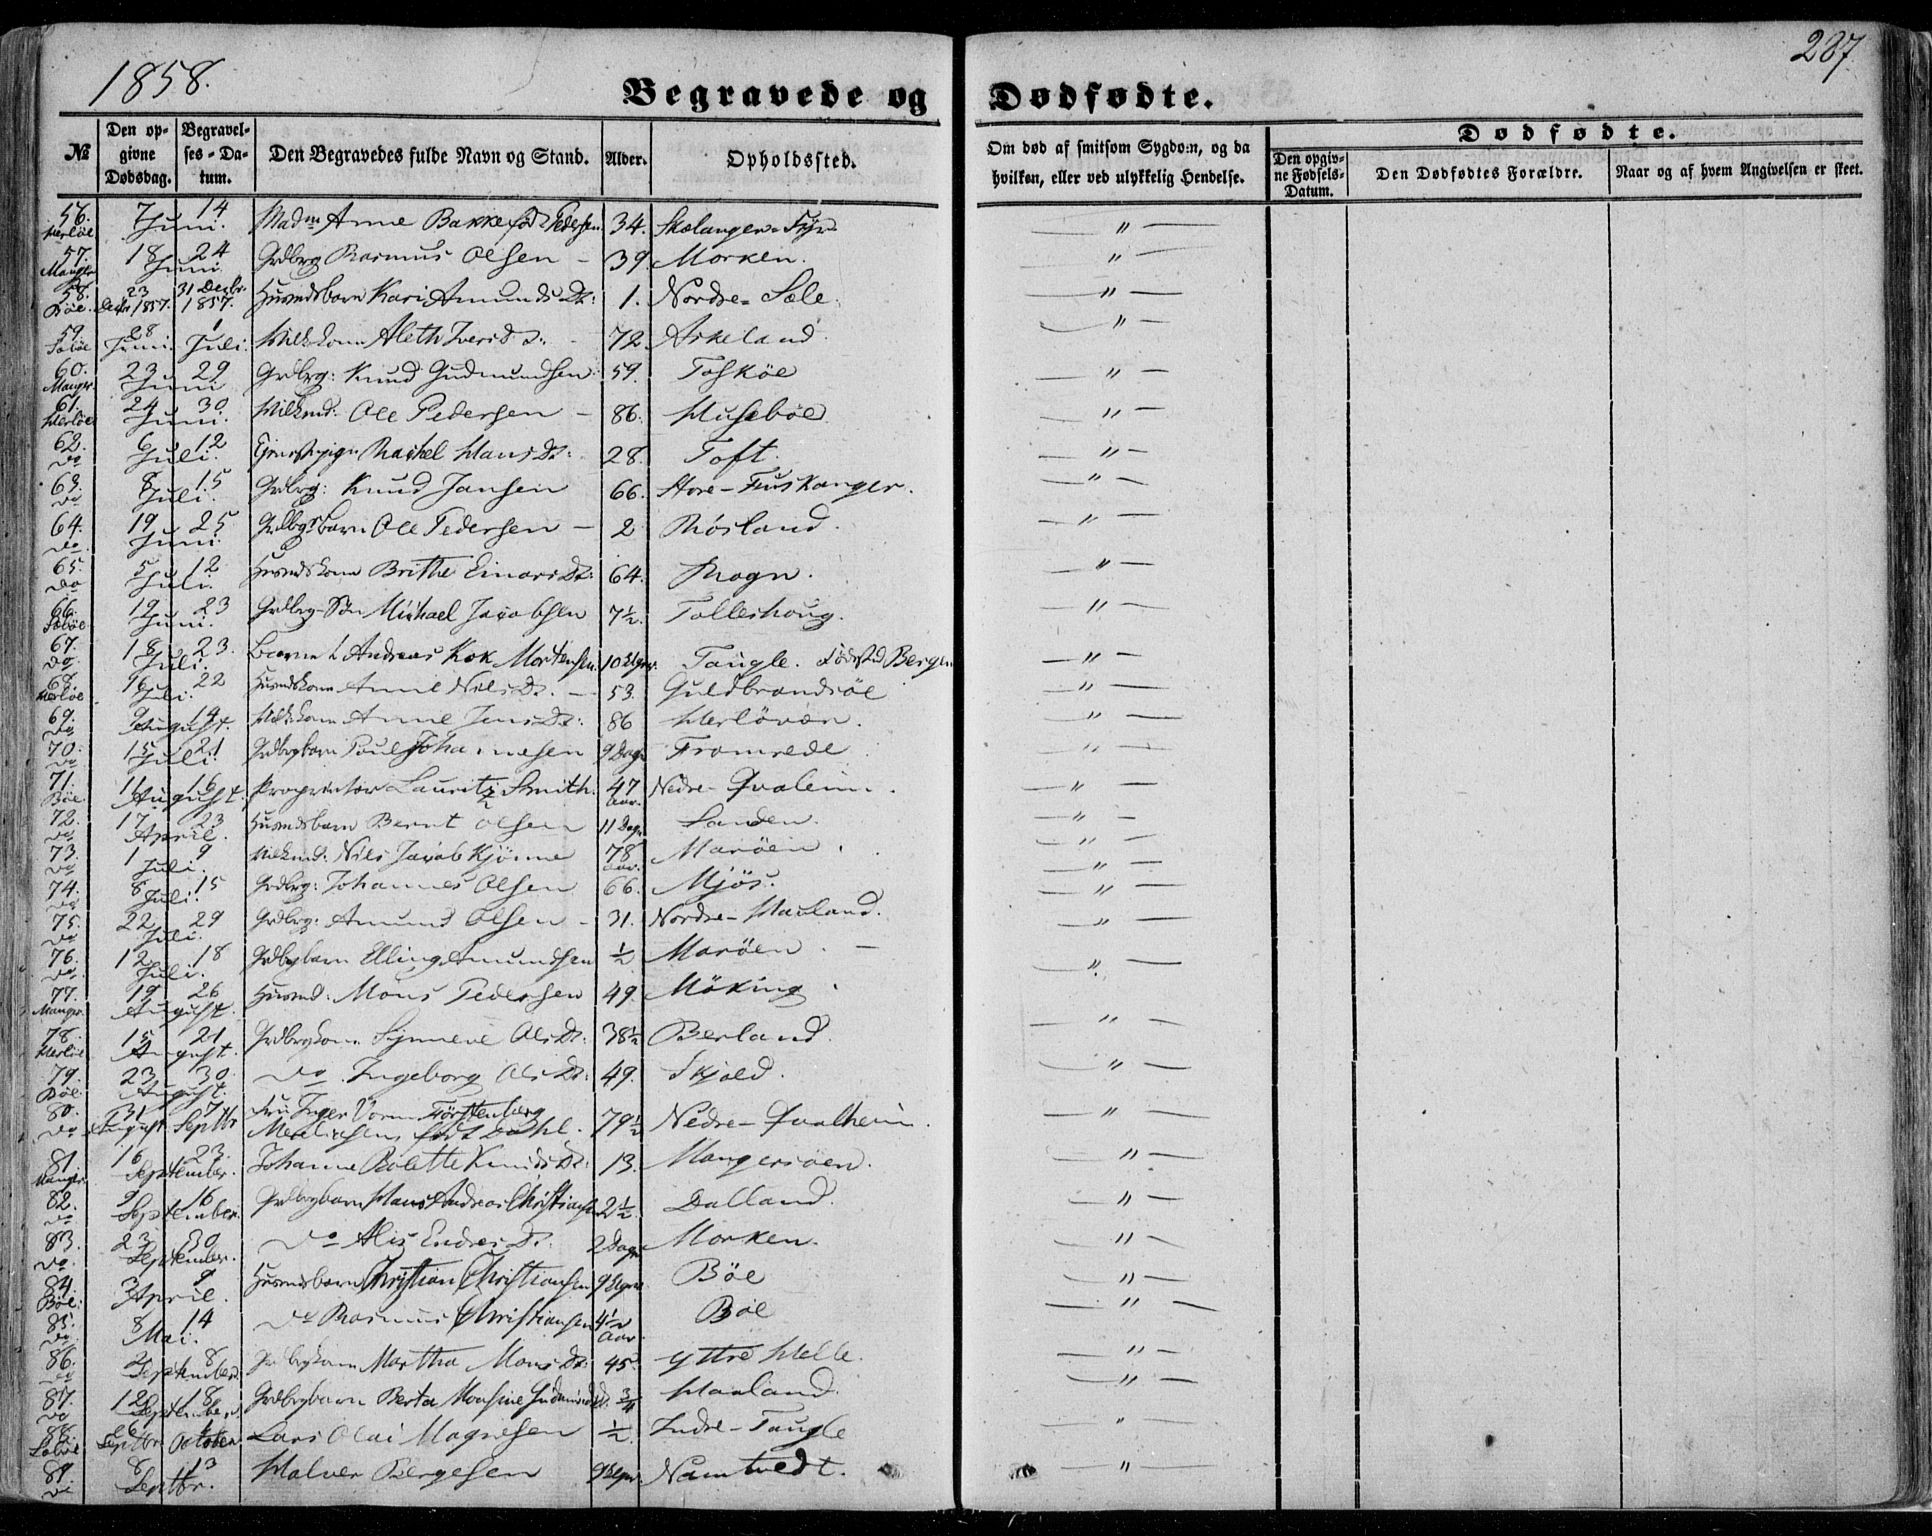 1858.
287.
Begravede og Dødfødte.
№ Den opgivne Dødsdag. Begravelses-Datum. Den Begravedes fulde Navn og Stand. Alder. Opholdssted. Om død af smitsom Sygdom, og da hvilken, eller ved ulykkelig Hendelse. Dødfødte. Den opgivne Fødsels-Datum. Den Dødfødtes Forældre. Naar og af hvem Angivelsen er skeet.
56. Herløe 7 Juni. 14 Madm Anne Bakke født Pedersen. 34. Skælanger-Fyr "
57. Manger 18 Juni 24 Grdbrg Rasmus Olsen - 39. Morken. "
58. Böe. 23 Decbr 1857. 31 Decbr. 1857. Husmdsbarn Kari Amunds Dr: 1. Nordre-Sæle. "
59. Sæbøe 28 Juni. 1 Juli. Vilkskone Aleth Ivers Dr: - 72. Askeland "
60. Manger. 23 Juni 29 Grdbrg: Knud Gudmundsen 59. Toskøe "
61. Herløe 24 Juni. 30. Vilkmd: Ole Pedersen - 86. Husebøe "
62. do 6 Juli. 12 Rachel Hans Dr: 28. Toft. "
63. do 8 Juli. 15 Grdbrg: Knud Jansen 66. Store-Fuskanger. "
64. do 19 Juni. 25 Grdbrgsbarn Ole Pedersen - 2 Røsland. "
65. do 5 Juli. 12 Husmdskone Brithe Einars Dr: 64. Rogn. "
66. Sæbøe 19 Juni. 23 Grdbrg-Søn Michael Jacobsen 7½ Tolleshoug. "
67. do 18 Juli. 23. Barnet Andreas Kok Mortensen. 10 Uger. Tangle. Fødested Bergen "
68. Herløe 16 Juli. 22 Husmdskone Anne Nils Dr. - 53. Guldbrandsöe "
69. do 9 August. 14 Vilkskone Anne Jens Dr: 86 Herlövær. "
70. do 15 Juli. 21 Grdbrgbarn Poul Johannesen 9 Dage Fromrede "
71. Böe 11 August. 16 Proprietær Lauritz Smith. 47 Aar. Nedre-Qvalem. "
72. do 17 April. 23 Husmdsbarn Bernt Olsen 11 Dage Sanden. "
73. do 1 Juli. 9 Vilkmd: Nils Jacob Kjönne 78 Aar. Maröen. "
74. do 8 Juli. 15 Grdbrg: Johannes Olsen 66. Mjös. "
75. do 22 Juli. 29 Grdbrg: Amund Olsen - 31. Nordre-Haaland. "
76. do 12 Juli. 18 Grdbrgbarn Elling Amundsen ½ Maröen. - "
77. Manger. 19 August. 26 Husmd: Mons Pedersen 49. Möking. "
78. Herløe 15 August. 21 Grdbrgkone Synneve Ols Dr: 38½ Berland. "
79. Böe 23 August. 30. do Ingeborg Ols Dr: 49. Skjold. "
80. do 31 August 7 Septbr Fru Inger Vorm Förstenberg
Meelichsen født Dahl. 79½ Nedre-Qvalheim. "
81. Manger 16 September. 23. Johanne Bolette Knuds Dr: 13. Mangersöen. "
82. do 9 September. 16 Grdbrgbarn Hans Andreas Christiansen 2½ Dalland. "
83. do 23 September. 30 do Alis Endres Dr. 2 Dage Morken. "
84. Böe. 3 April. 9 Husmdsbarn Christian Christiansen 9 Uger Böe "
85. do 8 Mai. 14 do Rasmus Christiansen 4½ Aar. Böe "
86. do 2 September 8 Grdbrgkone Martha Mons Dr: 45. Yttre Helle. "
87. do 12 September 18 Grdbrgbarn Berta Monsine Gudmunds D. ¾ Haaland. "
88. Sæbøe 26 Septbr 1 October Lars Olai Magnesen ½ Indre-Tangle "
89. do 8 Septbr. 13 Halver Börgesen 9 Uger. Namtvedt. "